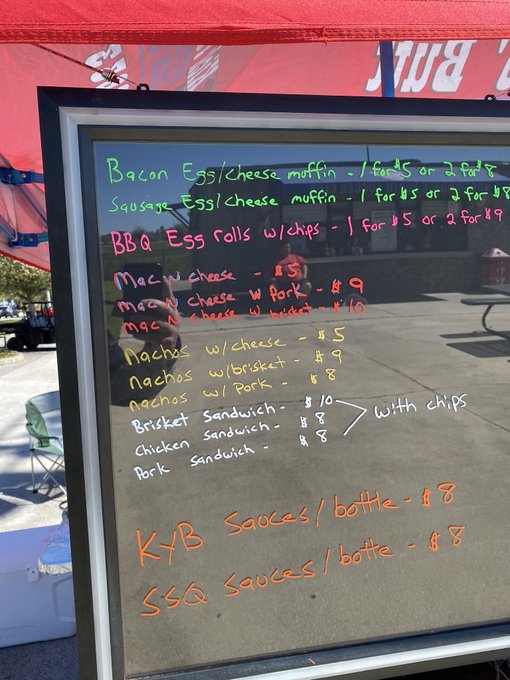 Butt
Bacon Egg/cheese muffin - 1 for $5 or 2 for $8
Sausage Egg/cheese muffin - 1 for $5 or 2 for $8
BBQ Egg rolls w/chips - 1 for $5 or 2 for $9
Mac N cheese - $5
Mac N cheese w Pork - $9
Mac N cheese w brisket - $10
Nachos w/cheese - $5
nachos w/brisket - $9
nachos w/ Pork - $8
Brisket Sandwich - $10
Chicken Sandwich - $8
Pork Sandwich - $8
with chips
KYB Sauces/bottle - $8
SSQ Sauces/botte - $8